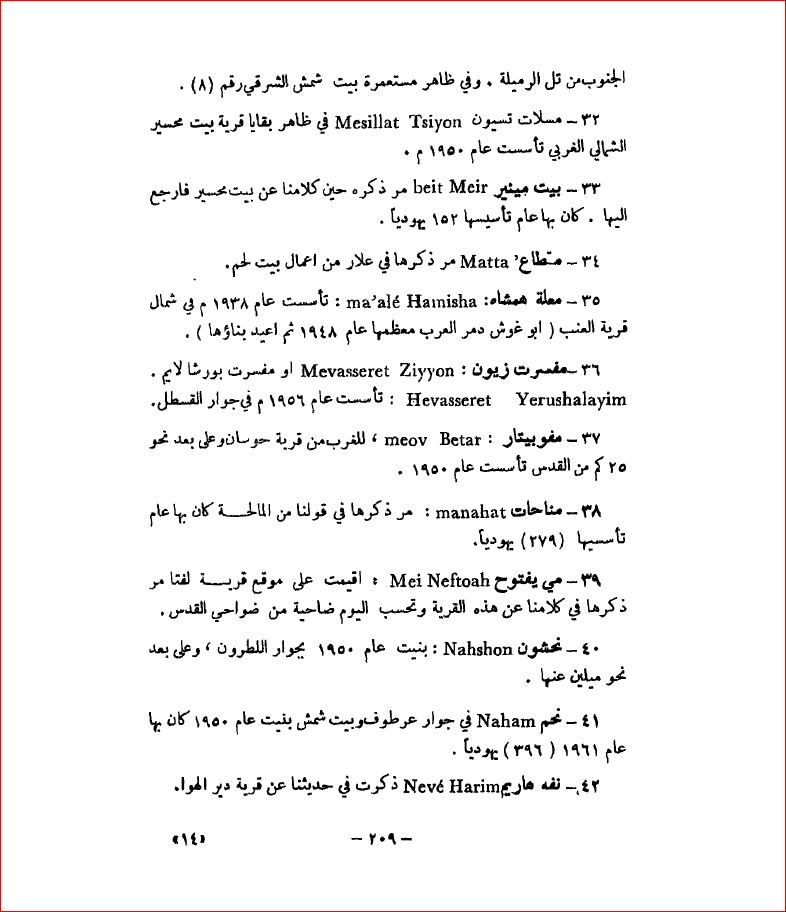 الجنوب من تل الرميلة . وفي ظاهر مستعمرة بيت شمش الشرقي رقم (٨) .
٣٢ – مسلات تسيون Mesillat Tsiyon في ظاهر بقايا قرية بيت محسير
الشمالي الغربي تأسست عام ١٩٥٠ م .
٣٣ – بيت ميئير beit Meir مر ذكره حين كلامنا عن بيت محسير فارجع
اليها . كان بها عام تأسيسها ١٥٢ يهودياً .
٣٤ – متّطاع' Matta مر ذكرها في علار من اعمال بيت لحم.
٣٥ – معلة همشاه: ma'alé Hamisha : تأسست عام ١٩٣٨ م في شمال
قرية العنب ( ابو غوش دمر العرب معظمها عام ١٩٤٨ ثم اعيد بناؤها ) .
٣٦ – مفسرت زيون : Mevasseret Ziyyon او مفسرت بورشا لايم .
Hevasseret Yerushalayim : تأسست عام ١٩٥٦ م في جوار القسطل.
٣٧ – مفوبيتار : meov Betar ، للغرب من قرية حوسان وعلى بعد نحو
٢٥ كم من القدس تأسست عام ١٩٥٠ .
٣٨ – مناحات manahat : مر ذكرها في قولنا من المالحة كان بها عام
تأسسيها (٢٧٩) يهودياً.
٣٩ – مي يفتوح Mei Neftoah : اقيمت على موقع قرية لفتا مر
ذكرها في كلامنا عن هذه القرية وتحسب اليوم ضاحية من ضواحي القدس .
٤٠ – نحشون Nahshon : بنيت عام ١٩٥٠ بجوار اللطرون ، وعلى بعد
نحو ميلين عنها .
٤١ – نحم Naham في جوار عرطوف وبيت شمش بنيت عام ١٩٥٠ كان بها
عام ١٩٦١ ( ٣٩٦ ) يهودياً .
٤٢ – نفه هاريم Nevé Harim ذكرت في حديثنا عن قرية دير الهوا.
– ٢٠٩ –
«١٤»